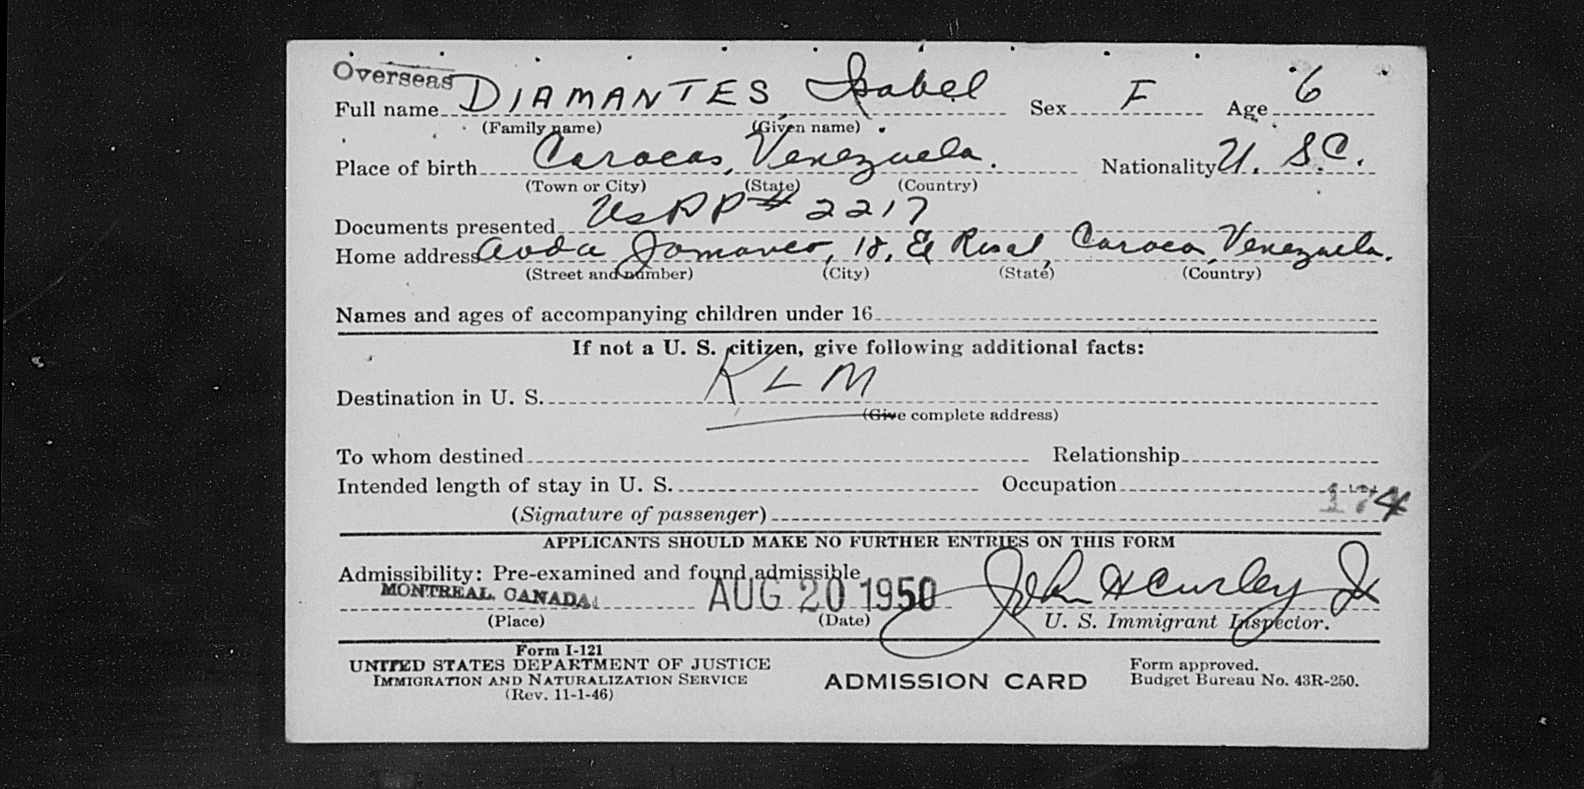 Overseas
Full name DIAMANTES Isabel Sex F Age 6
(Family name) (Given name)
Place of birth Caracas, Venezuela. Nationality U. S C.
(Town or City) (State) (Country)
Documents presented US PP # 2217
Home address Avda 18, El Caracas, Venezuela.
(Street and number) (City) (State) (Country)
Names and ages of accompanying children under 16
If not a U. S. citizen, give following additional facts:
Destination in U. S. KLM
(Give complete address)
To whom destined Relationship
Intended length of stay in U. S. Occupation
(Signature of passenger) 174
APPLICANTS SHOULD MAKE NO FURTHER ENTRIES ON THIS FORM
Admissibility: Pre-examined and found admissible
MONTREAL, CANADA. AUG 20 1950 John H Curley Jr
(Place) (Date) U. S. Immigrant Inspector.
Form I-121
UNITED STATES DEPARTMENT OF JUSTICE Form approved.
IMMIGRATION AND NATURALIZATION SERVICE ADMISSION CARD Budget Bureau No. 43R-250.
(Rev. 11-1-46)